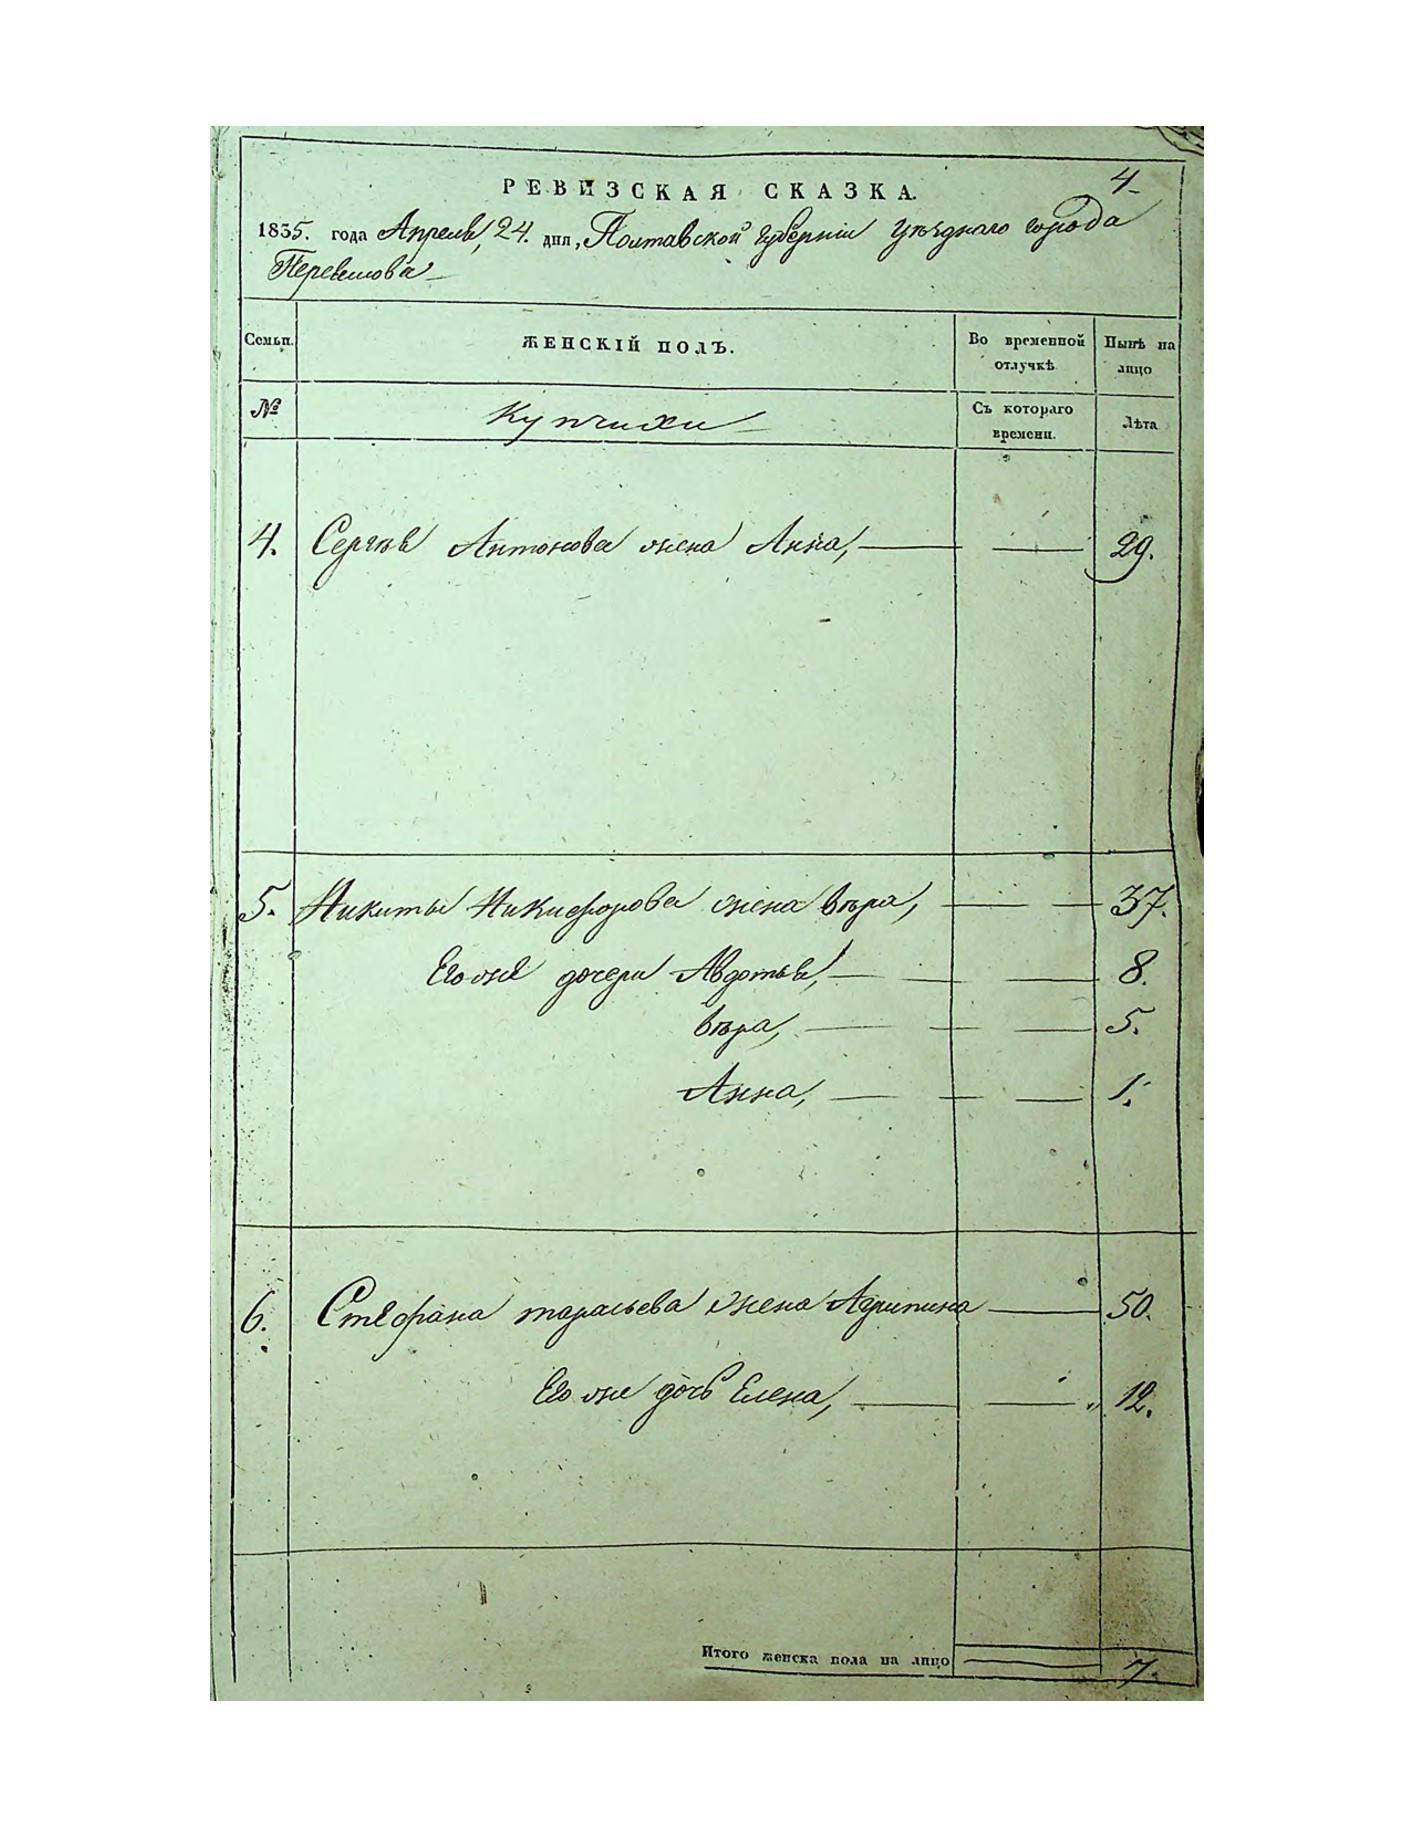 4
РЕВИЗСКАЯ СКАЗКА.
1835. года Апреля, 24. дня, Полтавской Губерніи Уѣзднаго города
Переяслова
Семьи.
ЖЕНСКІЙ ПОЛЪ.
Во временной отлучкѣ
Нынѣ на лицо
№
Купчихи
Съ котораго времени.
Лѣта
4. Сергѣя Антонова жена Анна, 29.
5. Никиты Никифорова жена Вѣра, 37.
Его же дочери Авдотья, 8.
Вѣра, 5.
Анна, 1.
6. Стефана Тарасьева жена Агрипина 50.
Его же дочь Елена, 12.
Итого женска пола на лицо 7.